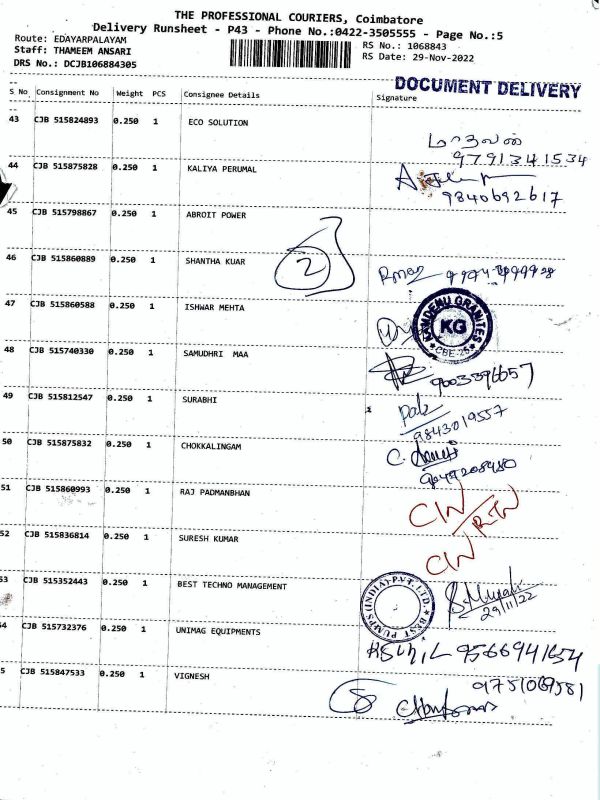 THE PROFESSIONAL COURIERS, Coimbatore
Delivery Runsheet - P43 - Phone No.:0422-3505555 - Page No.:5
Route: EDAYARPALAYAM
Staff: THAMEEM ANSARI
DRS No.: DCJB106884305
RS No.: 1068843
RS Date: 29-Nov-2022
DOCUMENT DELIVERY
S No Consignment No Weight PCS Consignee Details Signature
43 CJB 515824893 0.250 1 ECO SOLUTION
9791341534
44 CJB 515875828 0.250 1 KALIYA PERUMAL
9840692617
45 CJB 515798867 0.250 1 ABROIT POWER
2
46 CJB 515860889 0.250 1 SHANTHA KUAR
47 CJB 515860588 0.250 1 ISHWAR MEHTA
KAMDENU GRANITES
KG
CBE-25
48 CJB 515740330 0.250 1 SAMUDHRI MAA
49 CJB 515812547 0.250 1 SURABHI
9843019557
50 CJB 515875832 0.250 1 CHOKKALINGAM
51 CJB 515860993 0.250 1 RAJ PADMANBHAN
52 CJB 515836814 0.250 1 SURESH KUMAR
53 CJB 515352443 0.250 1 BEST TECHNO MANAGEMENT
BEST PUMPS (INDIA) PVT. LTD
29/11/22
54 CJB 515732376 0.250 1 UNIMAG EQUIPMENTS
9566941654
5 CJB 515847533 0.250 1 VIGNESH
9751069581